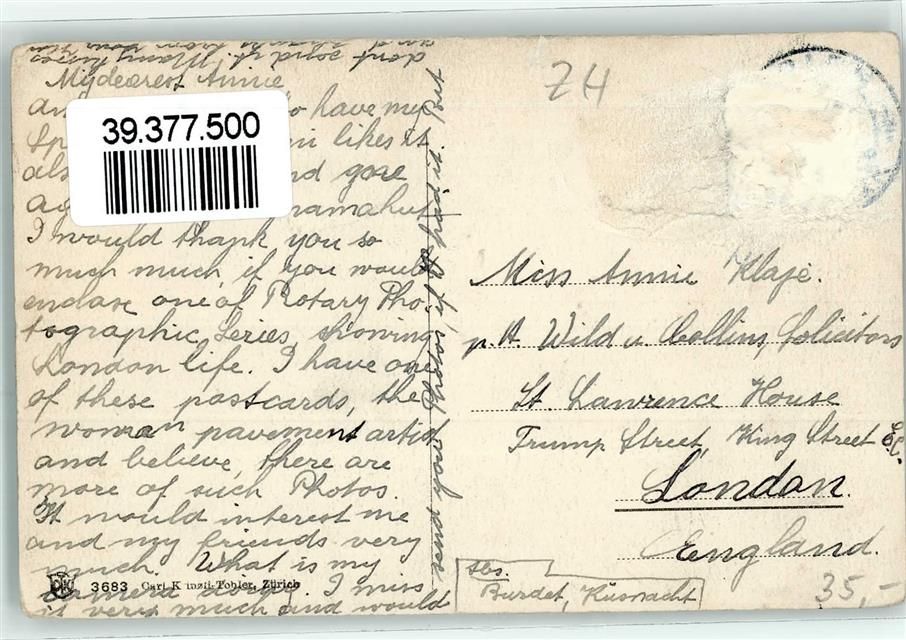 dont send it. Many kisses
and
My dearest Annie,
39.377.500
to have my
likes it
also nd gone
I would thank you so
much much, if you would
enclose one of Rotary Pho-
tographic Series, showing
London life. I have one
of these postcards, the
woman pavement artist
and believe, there are
more of such Photos.
It would interest me
and my friends very
much. What is my
I miss
it very much and would
some from Photos, if it
3683 Carl Künzli-Tobler, Zürich
ZH
Miss Annie Klaje.
p. A. Wild u. Collins, Solicitors
St. Lawrence House
Trump Street, King Street E.C.
London.
England.
Abs.
Burdet, Küsnacht
35,-